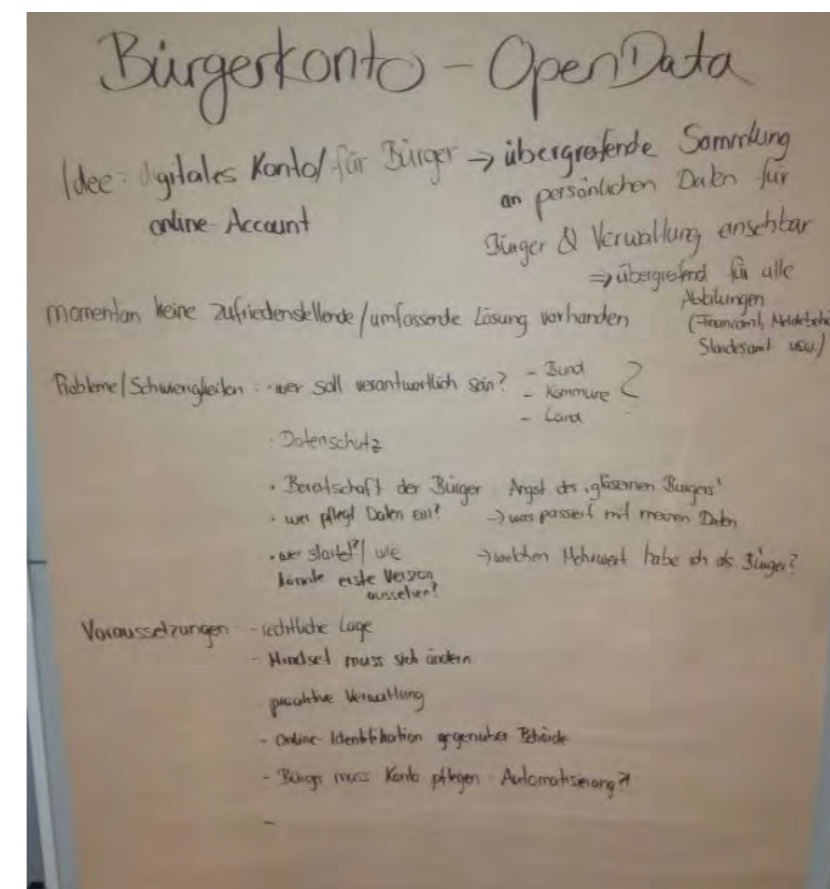 Bürgerkonto - OpenData
Idee: digitales Konto/ für Bürger → übergreifende Sammlung
online-Account an persönlichen Daten für
Bürger & Verwaltung ansehbar
⇒ übergreifend für alle
Abteilungen
(Finanzamt, Meldebehö
Standesamt usw.)
momentan keine zufriedenstellende/umfassende Lösung vorhanden
Probleme/Schwierigkeiten: · wer soll verantwortlich sein? - Bund
- Kommune ?
- Land
· Datenschutz
· Bereitschaft der Bürger Angst des "gläsernen Bürgers"
· wer pflegt Daten ein? → was passiert mit meinen Daten
· wer startet?/ wie → welchen Mehrwert habe ich als Bürger?
könnte erste Version
aussehen?
Voraussetzungen - rechtliche Lage
- Mindset muss sich ändern
proaktive Verwaltung
- Online-Identifikation gegenüber Behörde
- Bürger muss Konto pflegen Automatisierung?
-